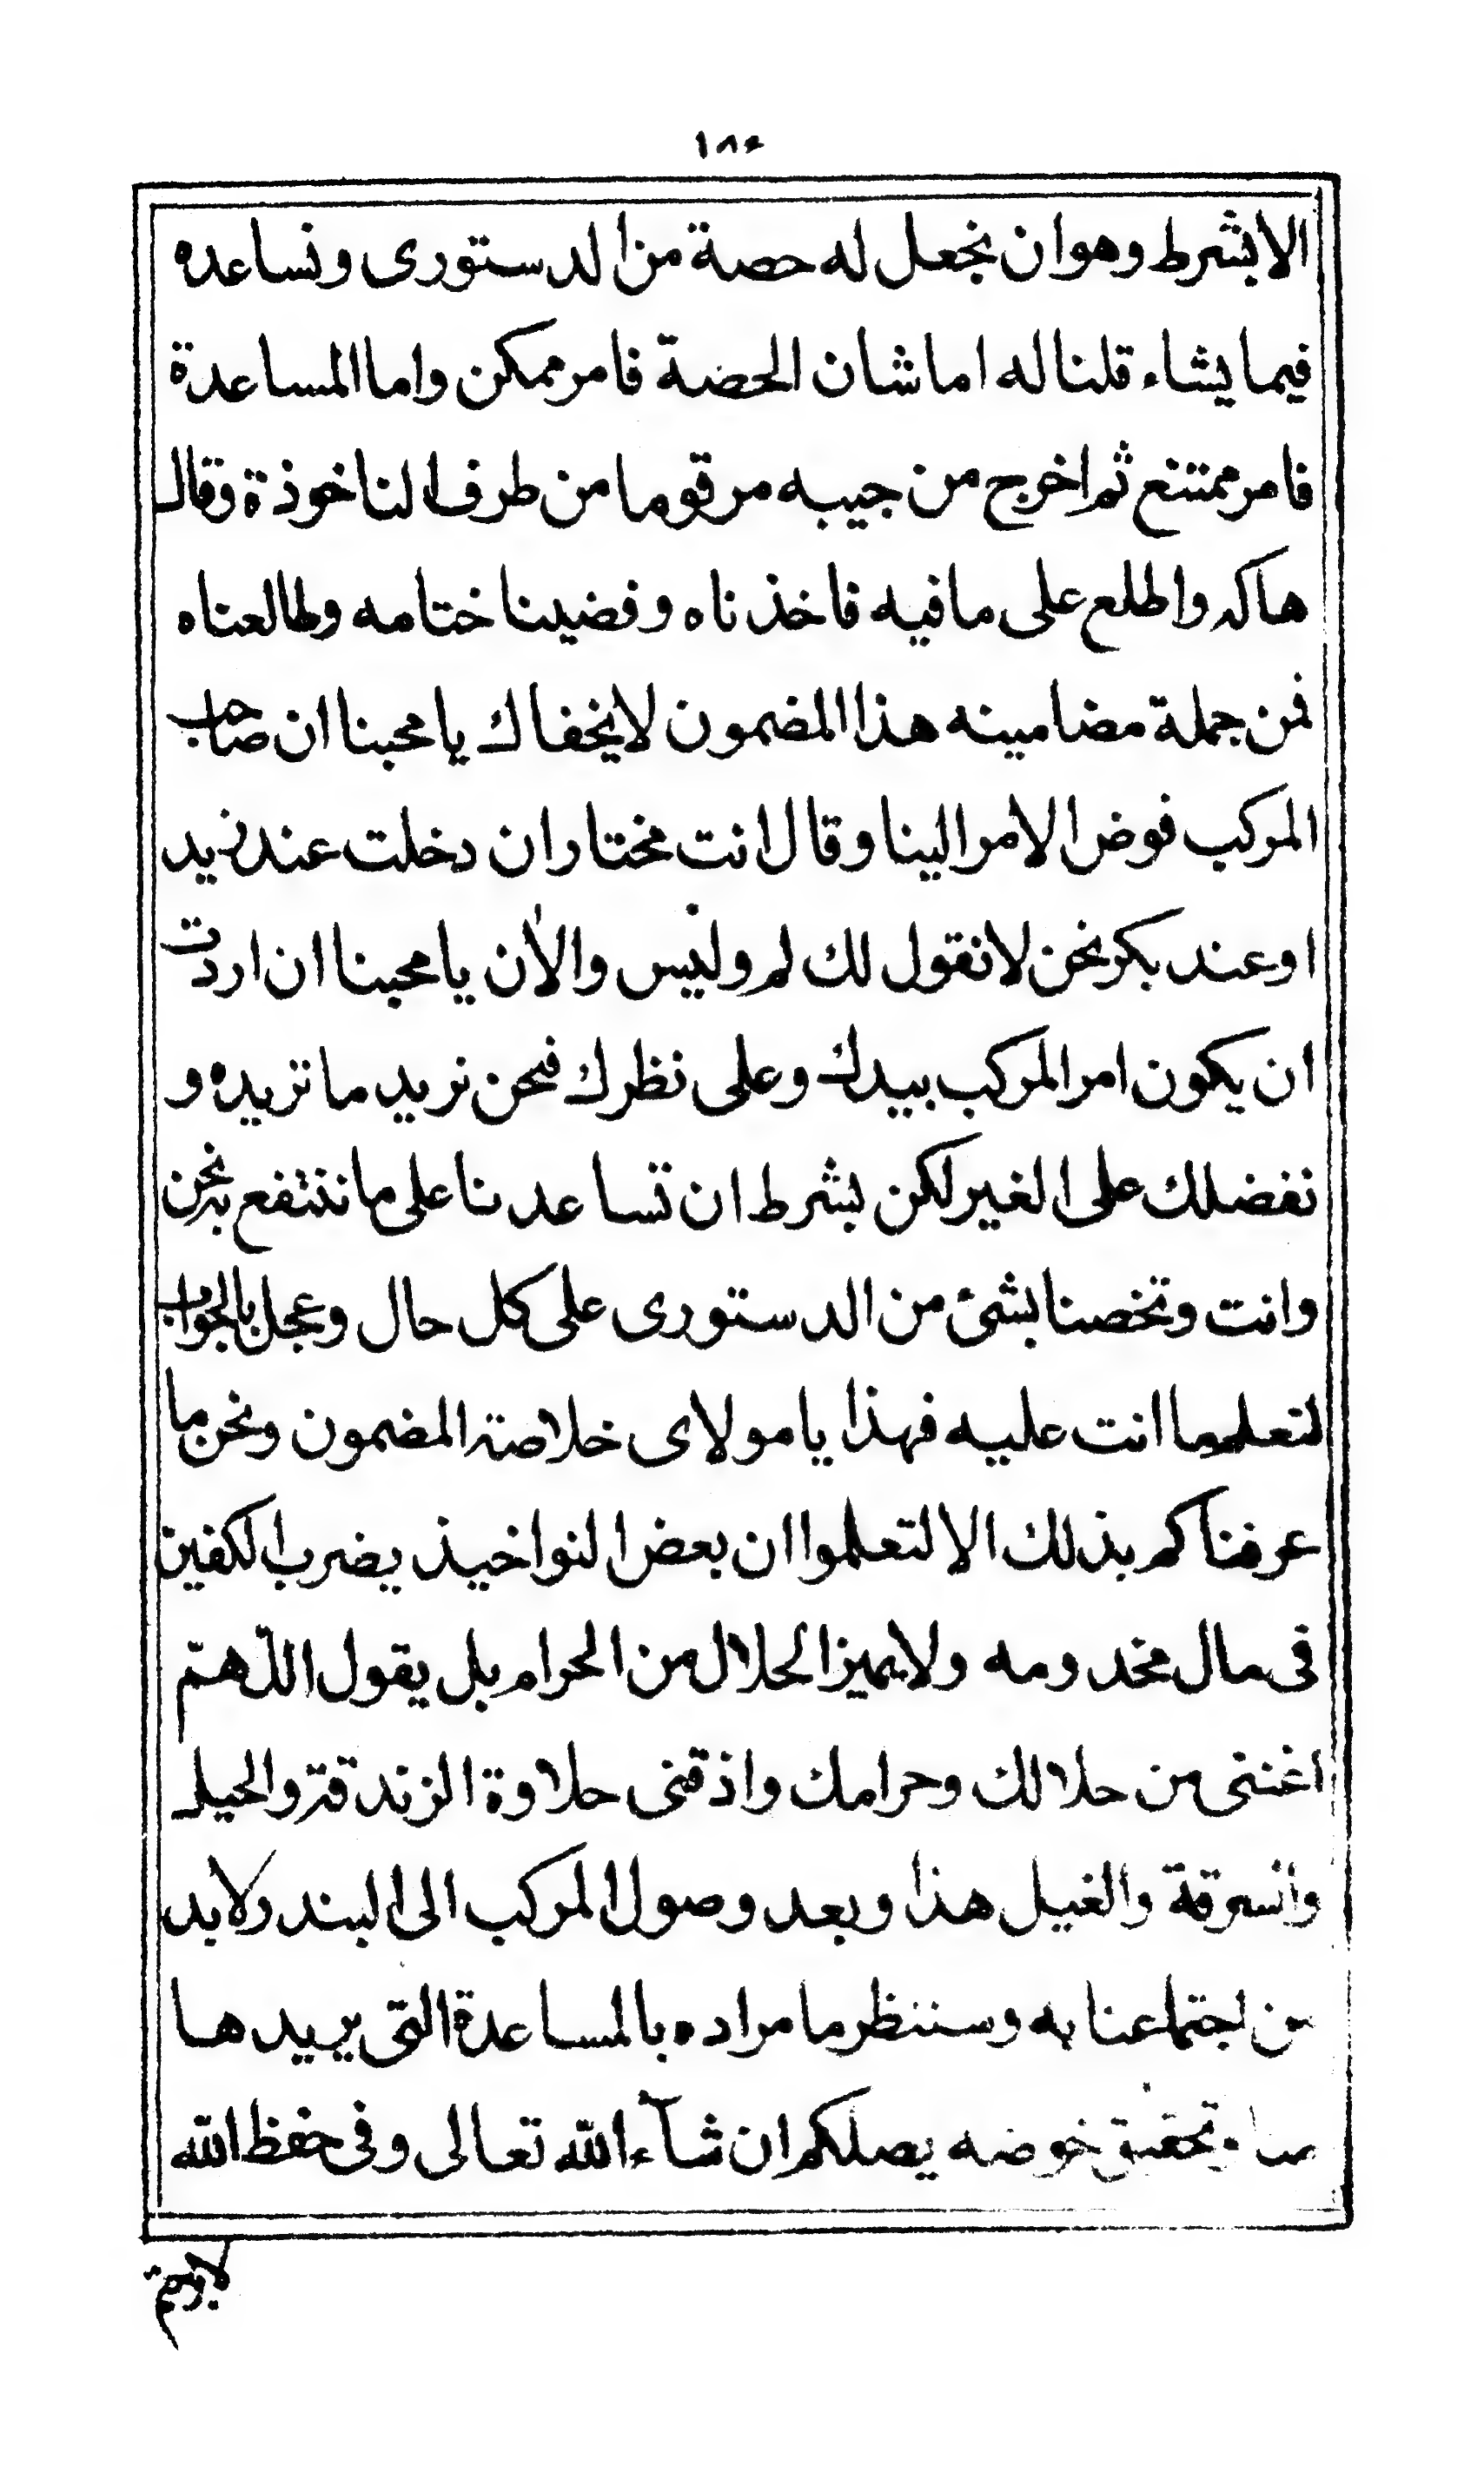 ١٨٤
الا بشرط وهو ان نجعل له حصة من الدستورى ونساعده
فيما يشاء قلنا له اما شان الحضة فامر ممكن واما المساعدة
فامر ممتنع ثم اخرج من جيبه مرقوما من طرف الناخوذة وقال
هاكه واطلع على ما فيه فاخذناه وفضينا ختامه وطالعناه
فمن جملة مضامينه هذا المضمون لا يخفاك يا محبنا ان صاحب
المركب فوض الامر الينا وقال انت مختار ان دخلت عند زيد
او عند بكر نحن لا نقول لك لم وليس والاٰن يا محبنا ان اردت
ان يكون امر المركب بيدك وعلى نظرك فنحن نريد ما تريده و
نفضلك على الغير لكن بشرط ان تساعدنا على ما ننتفع به نحن
وانت وتخصنا بشئ من الدستورى على كل حال وعجل بالجواب
لنعلم ما انت عليه فهذا يا مولاى خلاصة المضمون ونحن ما
عرفناكم بذلك الا لتعلموا ان بعض النواخيذ يضرب الكفين
فى مال مخدومه ولا يميز الحلال من الحرام بل يقول اللّهم
اغننى من حلالك وحرامك واذقنى حلاوة الزندقة والحيل
والسرقة والغيل هذا وبعد وصول المركب الى البندر لا بد
من اجتماعنا به وسننظر ما مراده بالمساعدة التى يريدها
وتحقيق خوضه يصلكم ان شآء الله تعالى وفى حفظ الله
لا برحتم